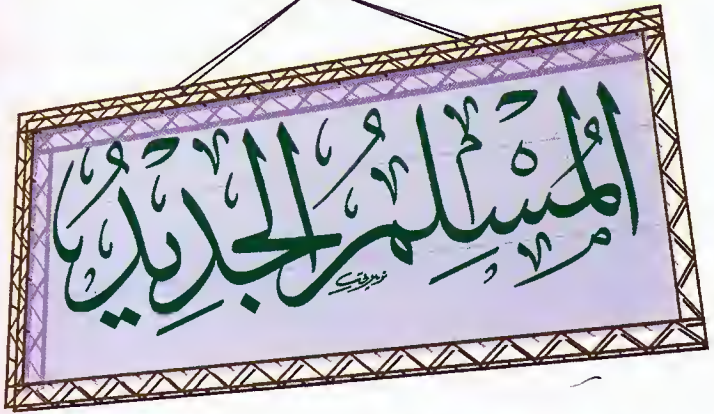 المُسْلِمُ الجَدِيْدُ